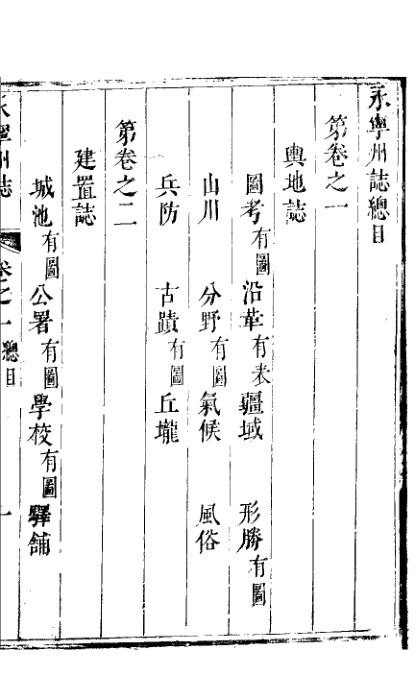 永寧州誌總目
第卷之一
輿地誌
圖考有圖 沿革有表 疆域 形勝有圖
山川 分野有圖 氣候 風俗
兵防 古蹟有圖 丘壠
第卷之二
建置誌
城池有圖 公署有圖 學校有圖 驛舖
永寧州誌 卷之一 總目 一